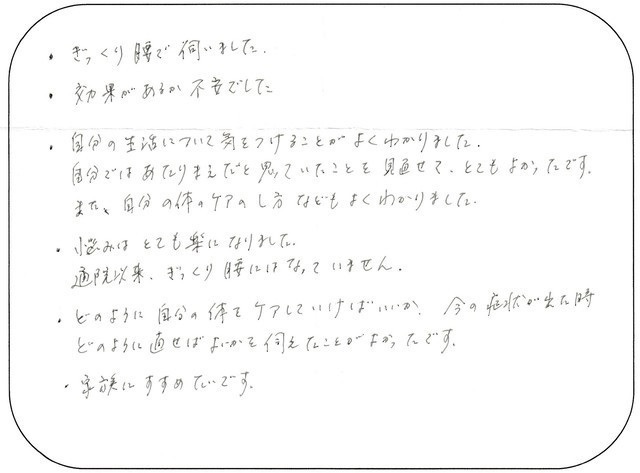 ・ぎっくり腰で伺いました.
・効果があるか不安でした
・自分の生活について気をつけることがよくわかりました.
自分ではあたりまえだと思っていたことを見直せて、とてもよかったです.
また、自分の体のケアのし方などもよくわかりました.
・悩みはとても楽になりました.
通院以来、ぎっくり腰にはなっていません.
・どのように自分の体をケアしていけばいいか、今の症状が出た時
どのように直せばよいかを伺えたことがよかったです.
・家族にすすめたいです.